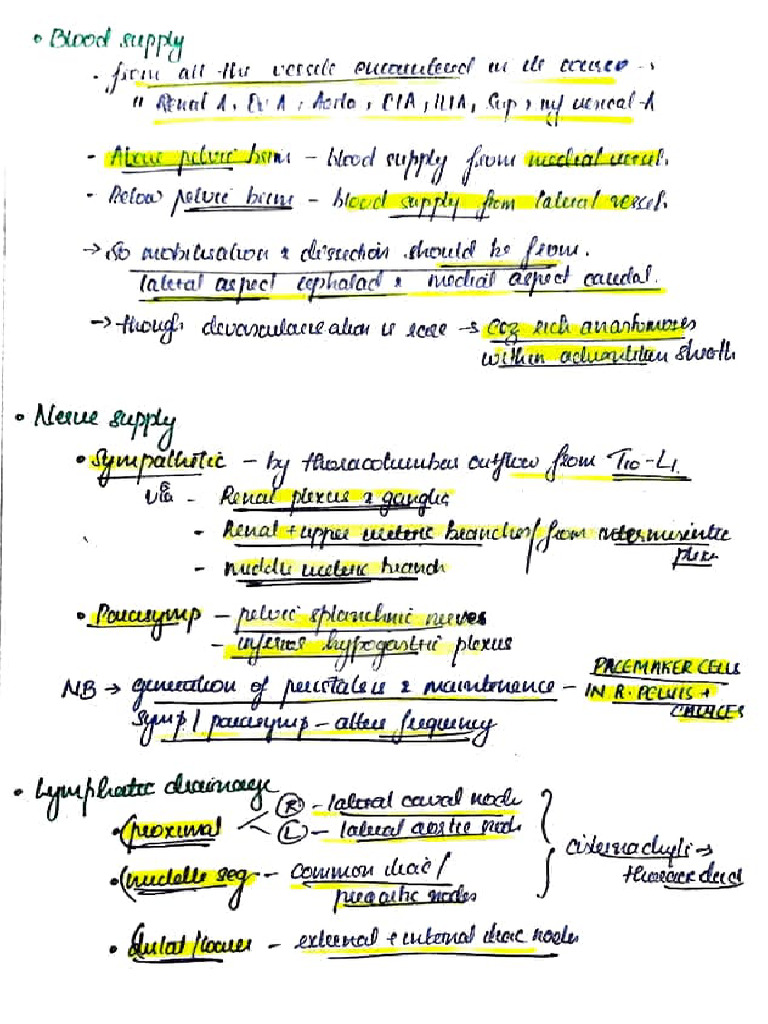 • Blood supply
- from all the vessels encountered in its course →
" Renal A, Gv A, Aorta, CIA, IIA, Sup, inf vesical A
- Above pelvic brim - blood supply from medial vessel.
- Below pelvic brim - blood supply from lateral vessel.
→ So mobilisation & dissection should be from.
lateral aspect cephalad & medial aspect caudal.
→ though devascularisation is rare → coz rich anastomoses
within adventitian sheath
• Nerve supply
• Sympathetic - by thoracolumbar outflow from T10-L1.
via - Renal plexus & ganglia
- Renal + upper ureteric branches / from intermesentric
plex
- middle ureteric branch
• Parasymp - pelvic splanchnic nerves
- inferior hypogastric plexus
NB → generation of peristalsis & maintenance - PACEMAKER CELLS
IN R. PELVIS +
CALYCES
Symp / parasymp - alters frequency
• Lymphatic drainage
• proximal < (R) - lateral caval node
(L) - lateral aortic node
• middle seg - common iliac /
preaortic nodes
cisterna chyli →
thoracic duct
• distal / lower - external + internal iliac nodes